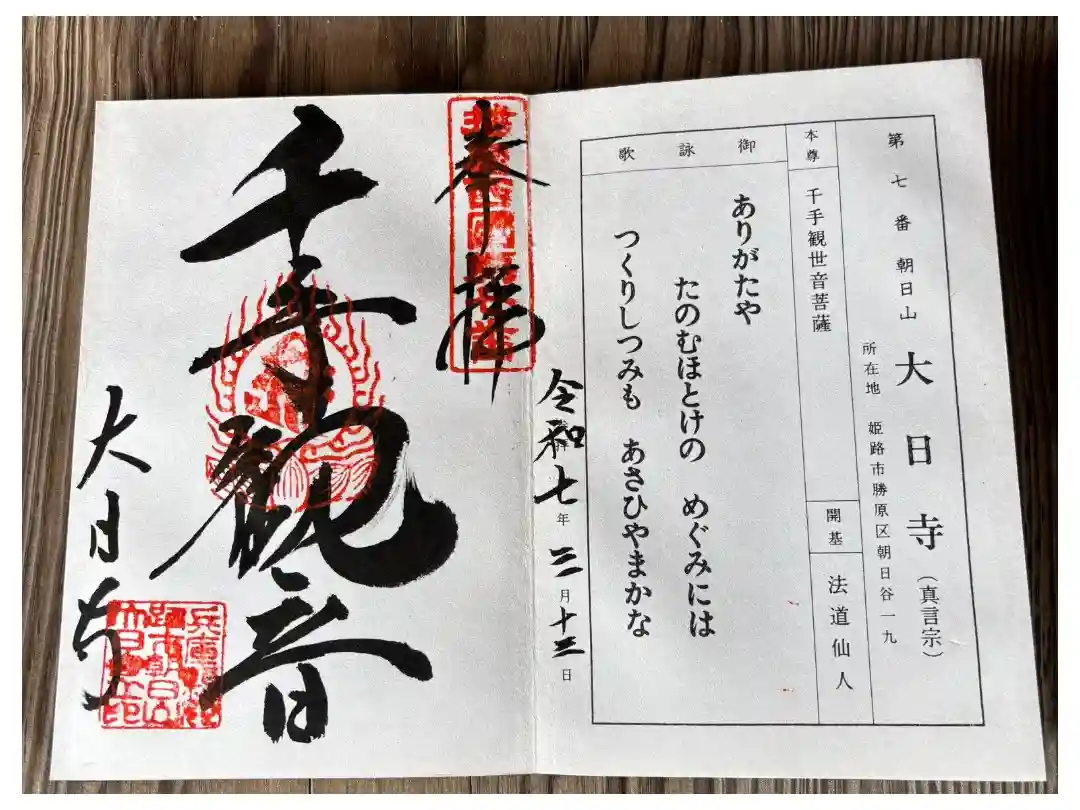 第七番 朝日山 大日寺（真言宗）
所在地 姫路市勝原区朝日谷一九
本尊 千手観世音菩薩
開基 法道仙人
御詠歌
ありがたや
たのむほとけの めぐみには
つくりしつみも あさひやまかな
令和七年三月十三日
奉拝
千手観音
大日寺